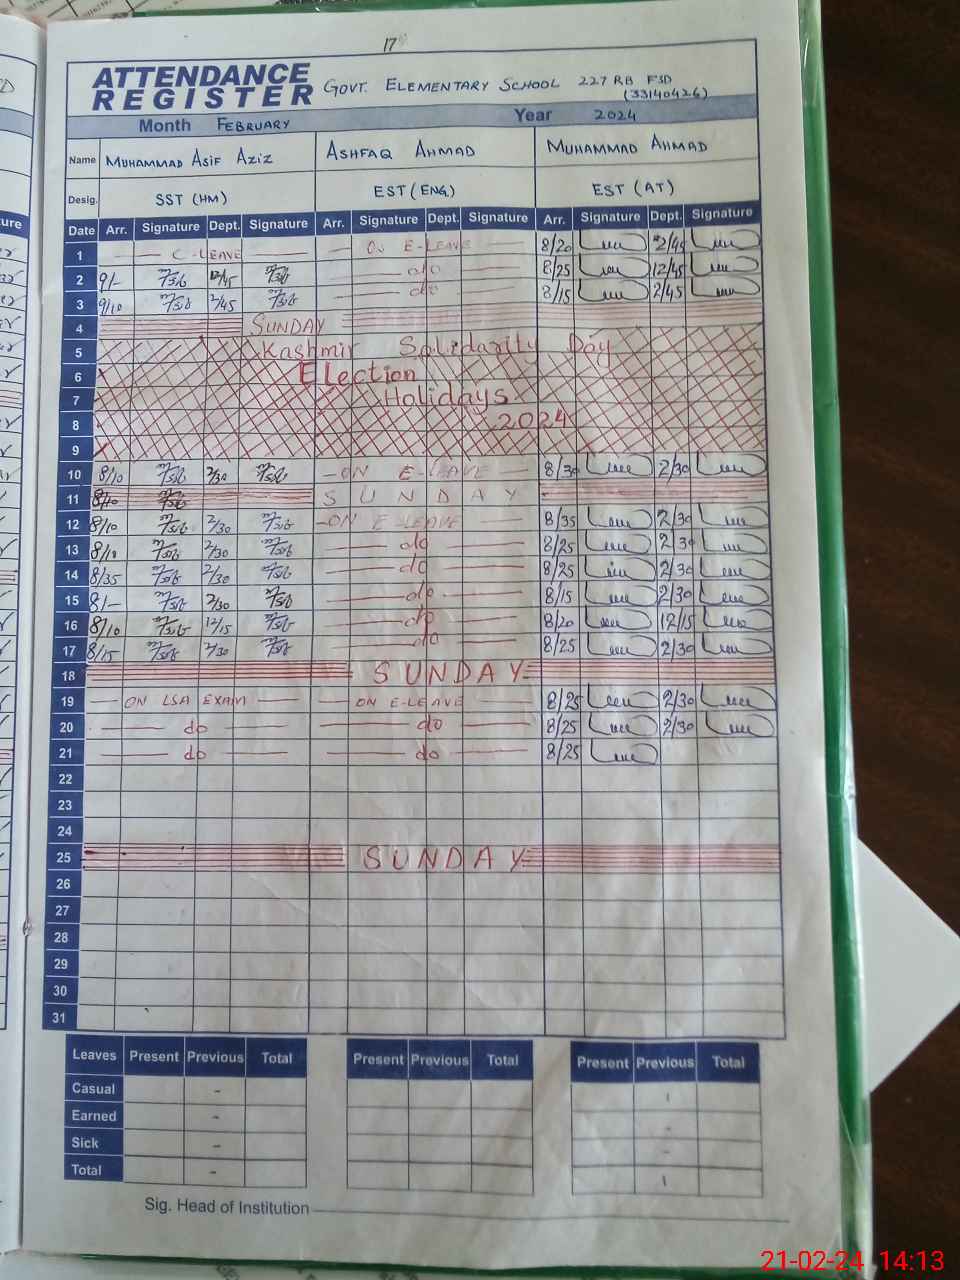 179
ATTENDANCE REGISTER GOVT. ELEMENTARY SCHOOL 227 RB FSD
(33140426)
Month FEBRUARY Year 2024
Name MUHAMMAD ASIF AZIZ ASHFAQ AHMAD MUHAMMAD AHMAD
Desig. SST (HM) EST (ENG) EST (AT)
Date Arr. Signature Dept. Signature Arr. Signature Dept. Signature Arr. Signature Dept. Signature
1 C-LEAVE ON E-LEAVE 8/20 2/45
2 9/- 12/45 do 8/25 12/45
3 9/10 2/45 do 8/15 2/45
4 SUNDAY
5 Kashmir Solidarity Day
6 Election
7 Holidays
8 2024
9
10 8/10 2/30 ON E-LEAVE 8/30 2/30
11 8/10 SUNDAY
12 8/10 2/30 ON E-LEAVE 8/35 2/30
13 8/10 2/30 do 8/25 2/30
14 8/35 2/30 do 8/25 2/30
15 8/- 2/30 do 8/15 2/30
16 8/10 12/15 do 8/20 12/15
17 8/15 2/30 do 8/25 2/30
18 SUNDAY
19 ON LSA EXAM ON E-LEAVE 8/25 2/30
20 do do 8/25 2/30
21 do do 8/25
22
23
24
25 SUNDAY
26
27
28
29
30
31
Leaves Present Previous Total Present Previous Total Present Previous Total
Casual - 1
Earned - -
Sick - -
Total - 1
Sig. Head of Institution
21-02-24 14:13